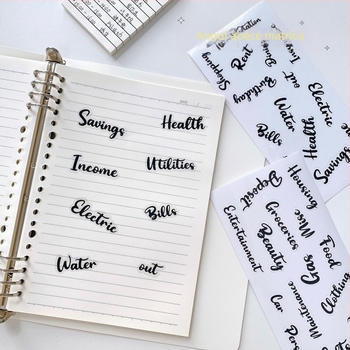 Savings Health
Income Utilities
Electric Bills
Water out
Rent
out
Shopping
Birthday
Electric
Water
Bills
Health
Savings
Housing
Deposit
Misc
Groceries
Food
Entertainment
Beauty
Gas
Clothing
Maintenance
Car